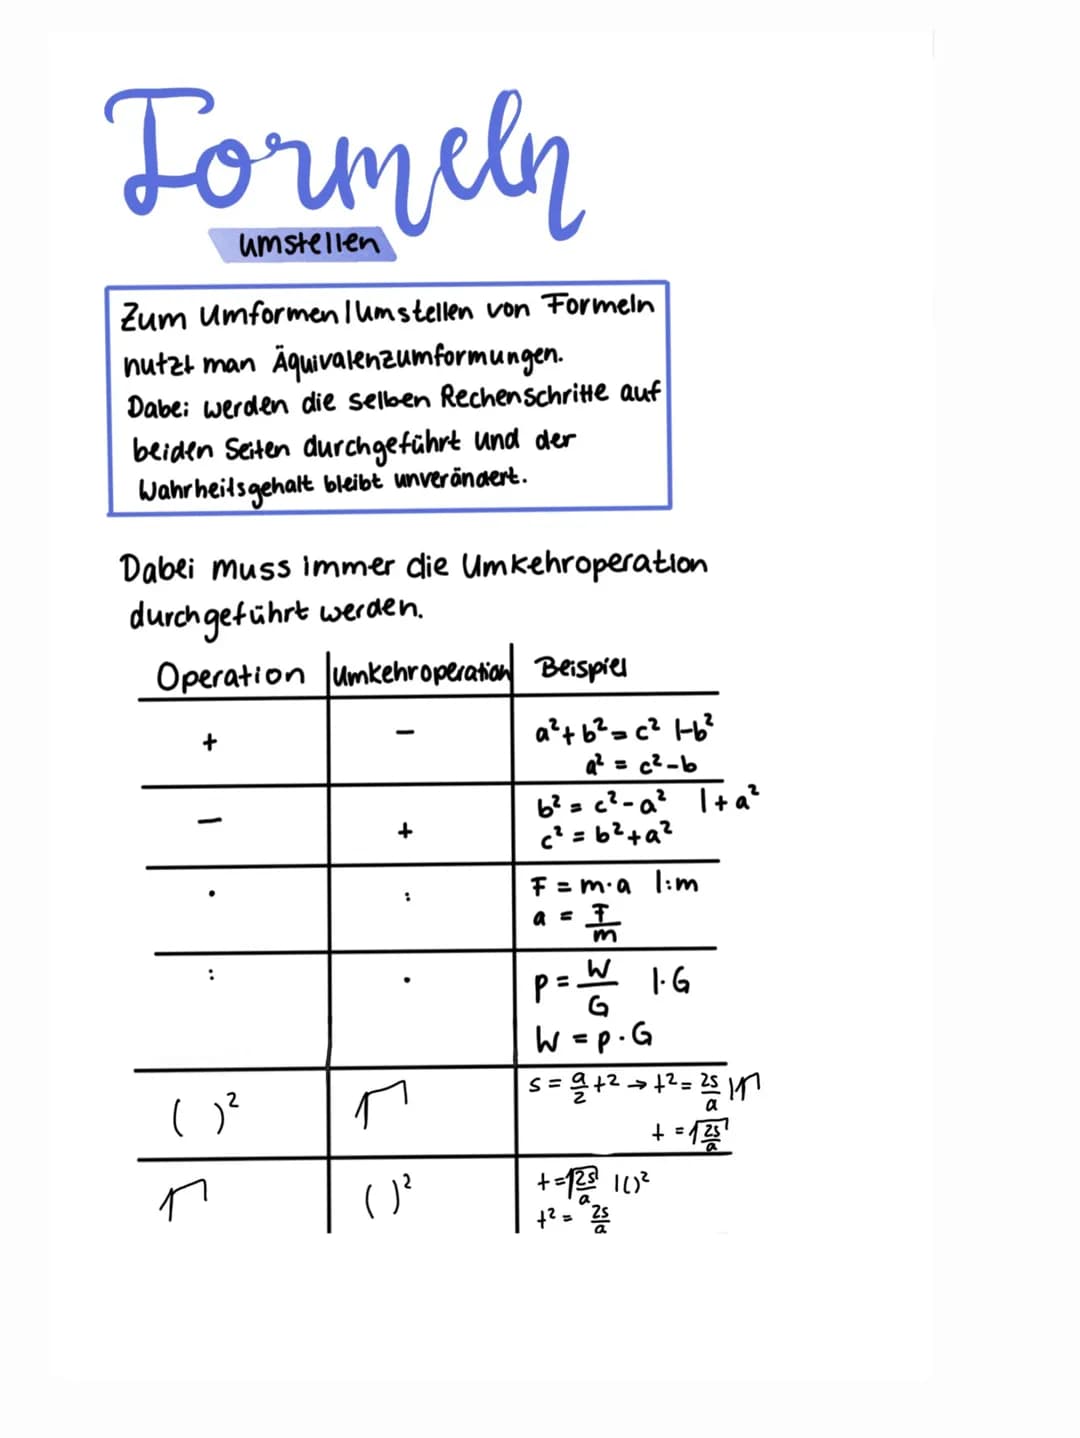 Formeln
umstellen
Zum Umformen/Umstellen von Formeln
nutzt man Äquivalenzumformungen.
Dabei werden die selben Rechenschritte auf
beiden Seiten durchgeführt und der
Wahrheitsgehalt bleibt unverändert.
Dabei muss immer die Umkehroperation
durchgeführt werden.
Operation | Umkehroperation | Beispiel
+ | − | a² + b² = c² |-b²
a² = c² - b
− | + | b² = c² - a² |+a²
c² = b² + a²
· | : | F = m·a |:m
a = F/m
: | · | p = W/G |·G
W = p·G
( )² | √ | s = a/2 t² → t² = 2s/a |√
t = √(2s/a)
√ | ( )² | t = √(2s/a) |( )²
t² = 2s/a